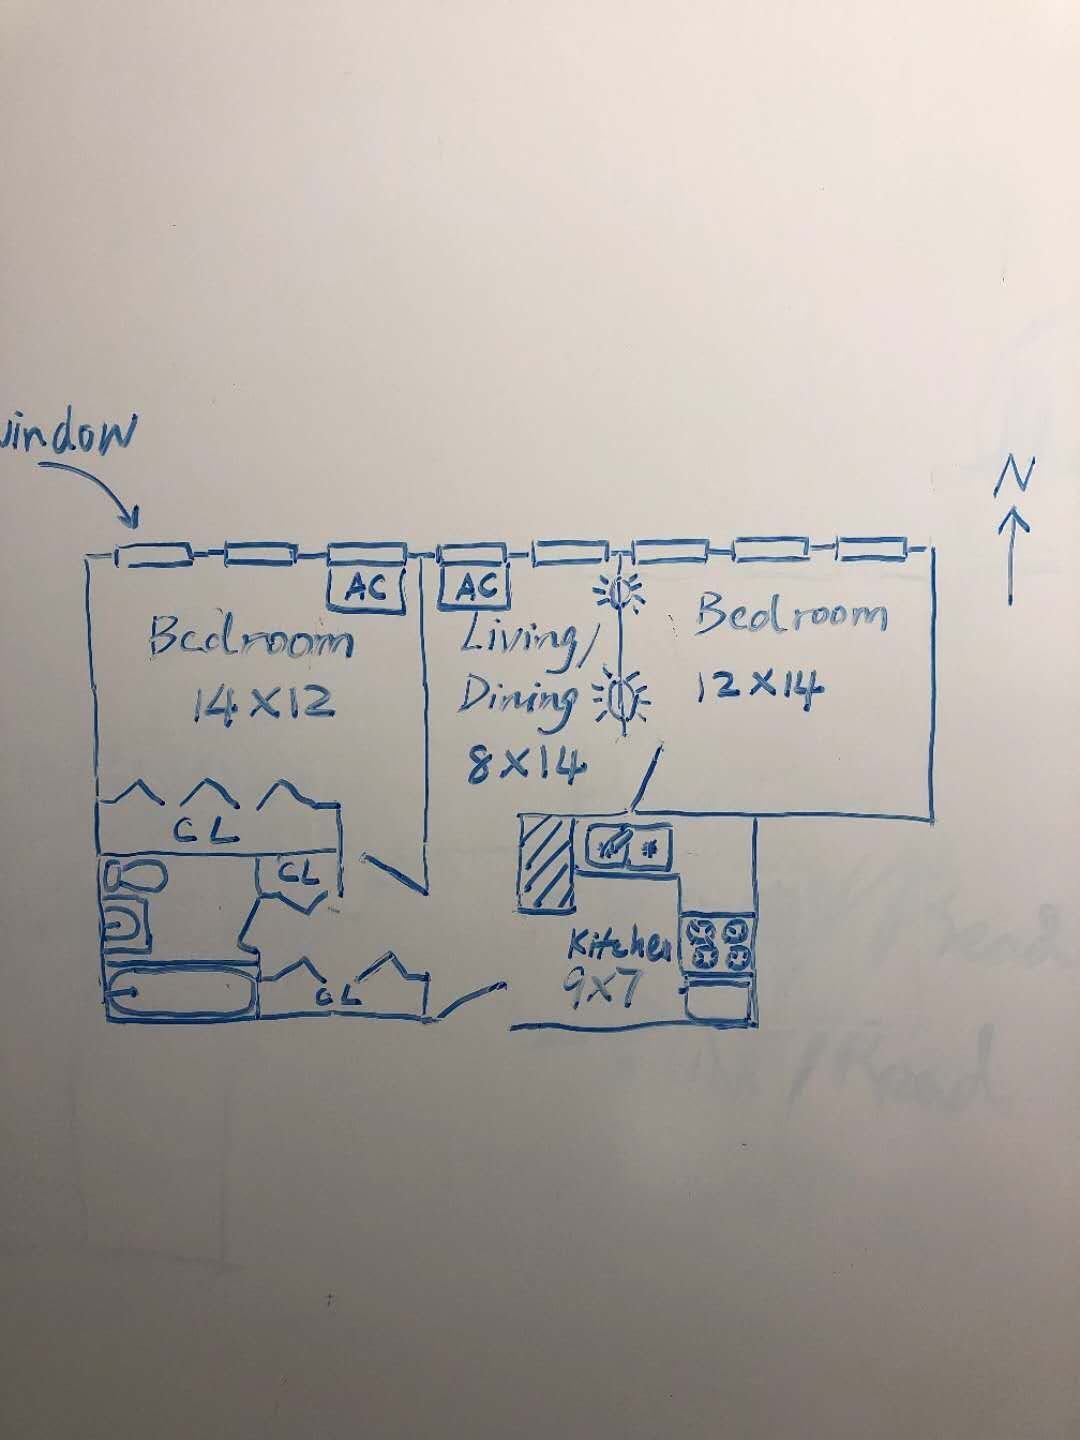 window
N
AC
AC
Bedroom
14X12
Living/
Dining
8X14
Bedroom
12X14
CL
CL
Kitchen
9X7
CL